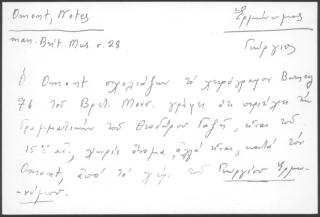 Omont, Notes
man. Brit Mus σ. 28
Ἑρμώνυμος
Γεώργιος
Ὁ Omont σχολιάζων τὸ χειρόγραφον Burney
76 τοῦ Βρετ. Μουσ. γράφει ὅτι περιέχει τὴν
Γραμματικὴν τοῦ Θεοδώρου Γαζῆ, εἶναι τοῦ
15ου αἰ., χωρὶς ὄνομα, ἀλλὰ εἶναι, κατὰ τὸν
Omont, ἀπὸ τὸ χέρι τοῦ Γεωργίου Ἑρμω-
νύμου.